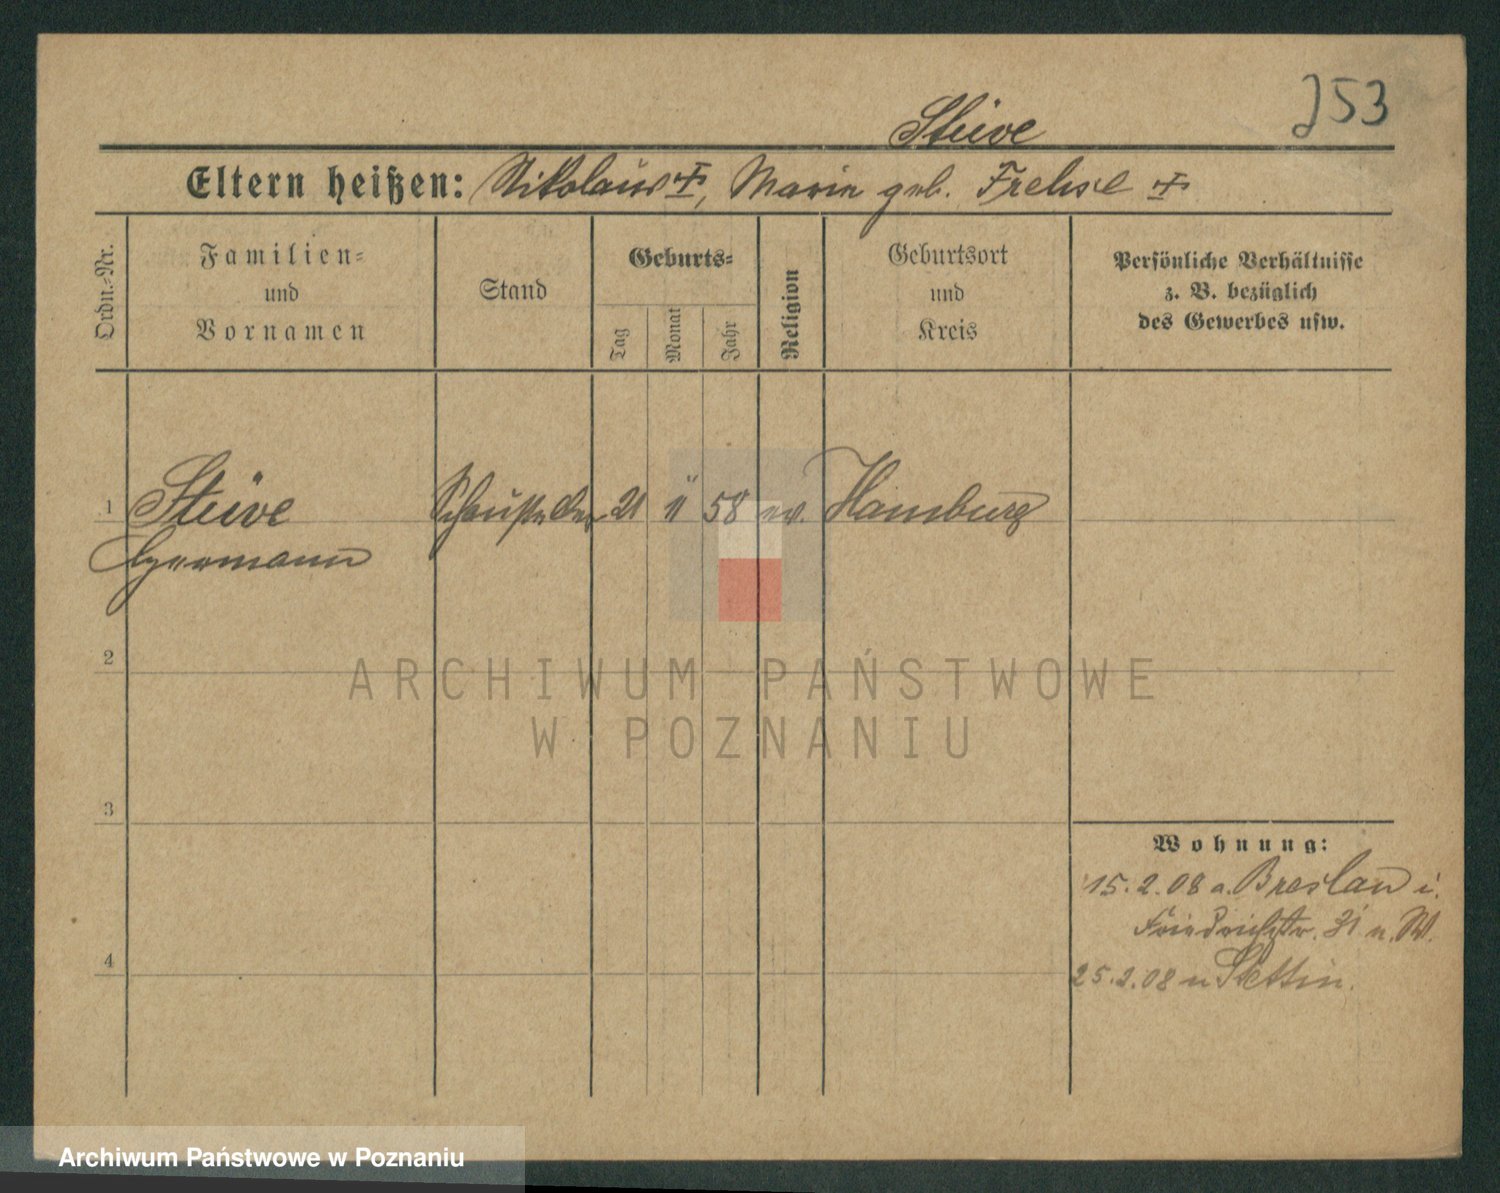 253
Stüve
Eltern heißen: Nikolaus †, Marie geb. Frehse †
Ordn.-Nr.
Familien-
und
Vornamen
Stand
Geburts-
Tag
Monat
Jahr
Religion
Geburtsort
und
Kreis
Persönliche Verhältnisse
z. B. bezüglich
des Gewerbes usw.
1 Stüve Schausteller 21 11 58 ev. Hamburg
Hermann
2
3
4
ARCHIWUM PAŃSTWOWE
W POZNANIU
Wohnung:
15.2.08 a. Breslau i.
Friedrichstr. 31 n. W.
25.2.08 n Stettin.
Archiwum Państwowe w Poznaniu